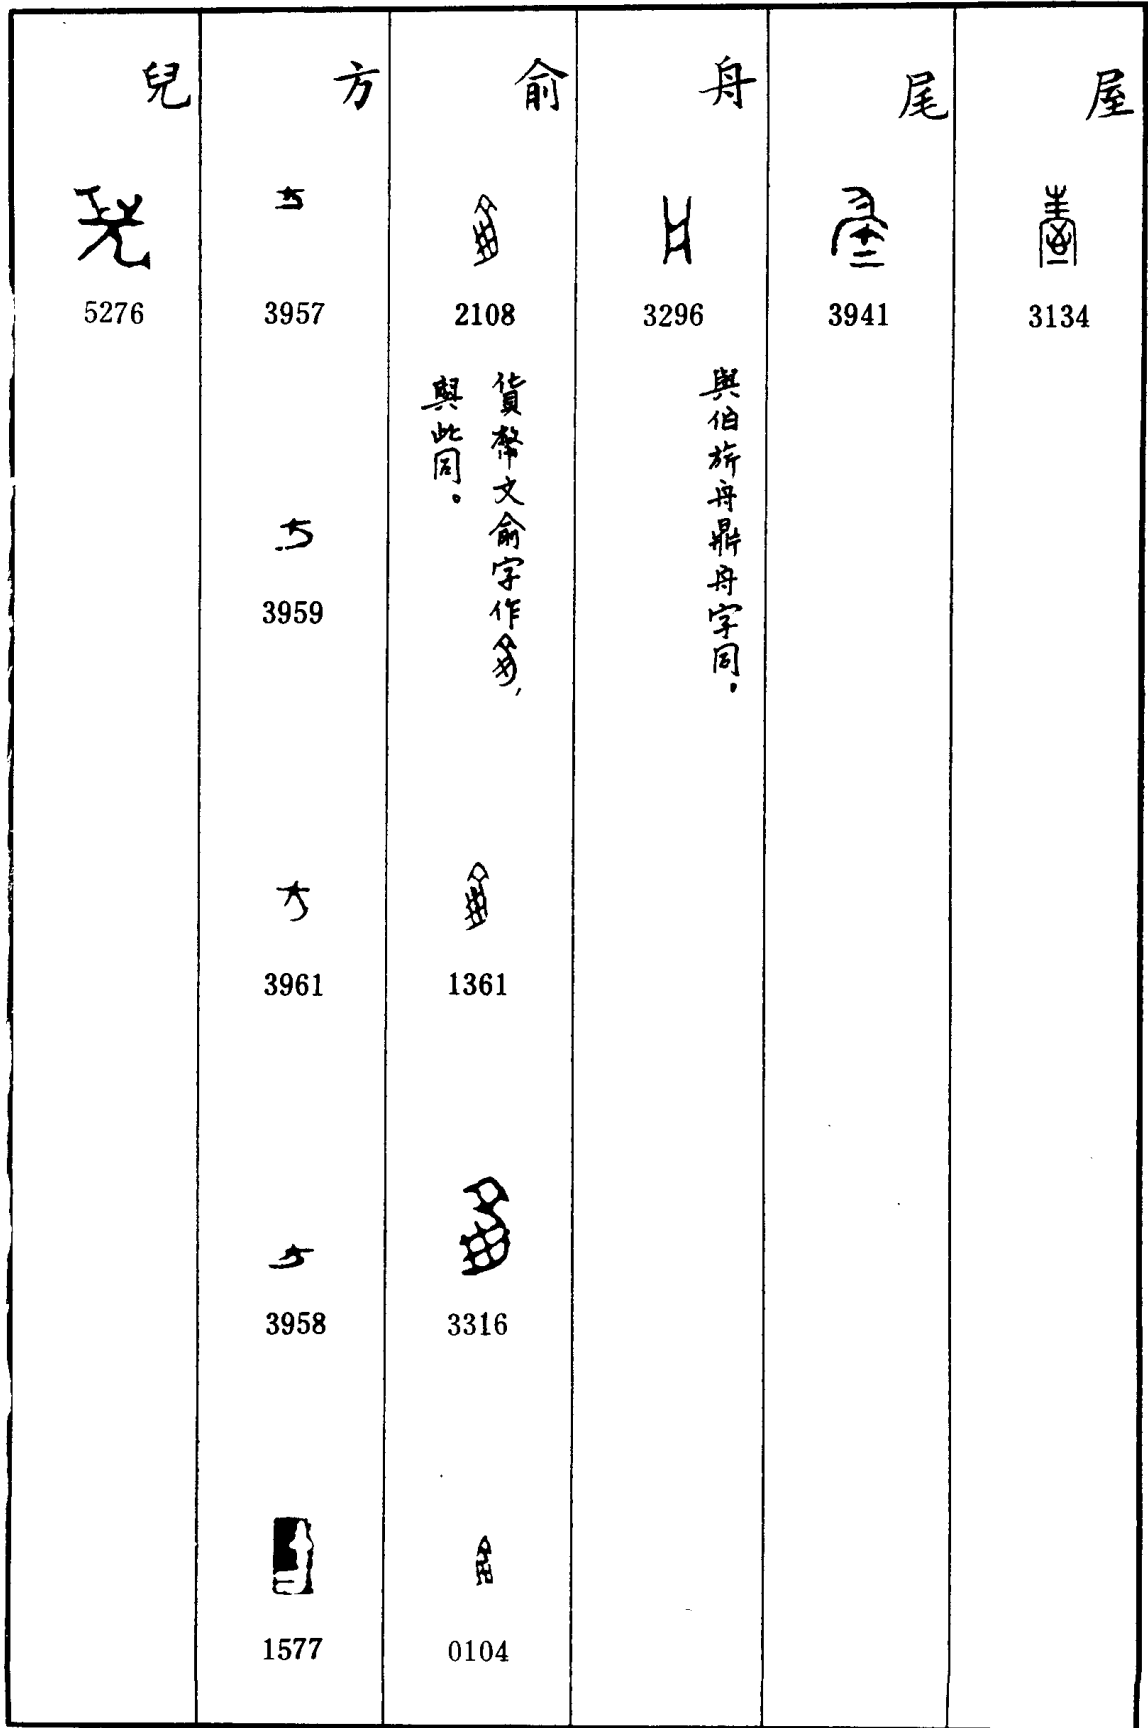 屋
3134
尾
3941
舟
3296
與伯旂舟鼎舟字同。
俞
2108
貨幣文俞字作，
與此同。
1361
3316
0104
方
3957
3959
3961
3958
1577
兒
5276